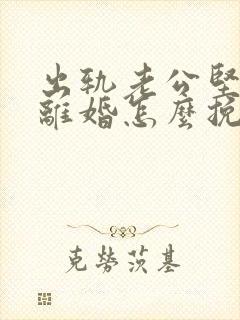 出軌老公堅
離婚怎麼挽
克勞茨基